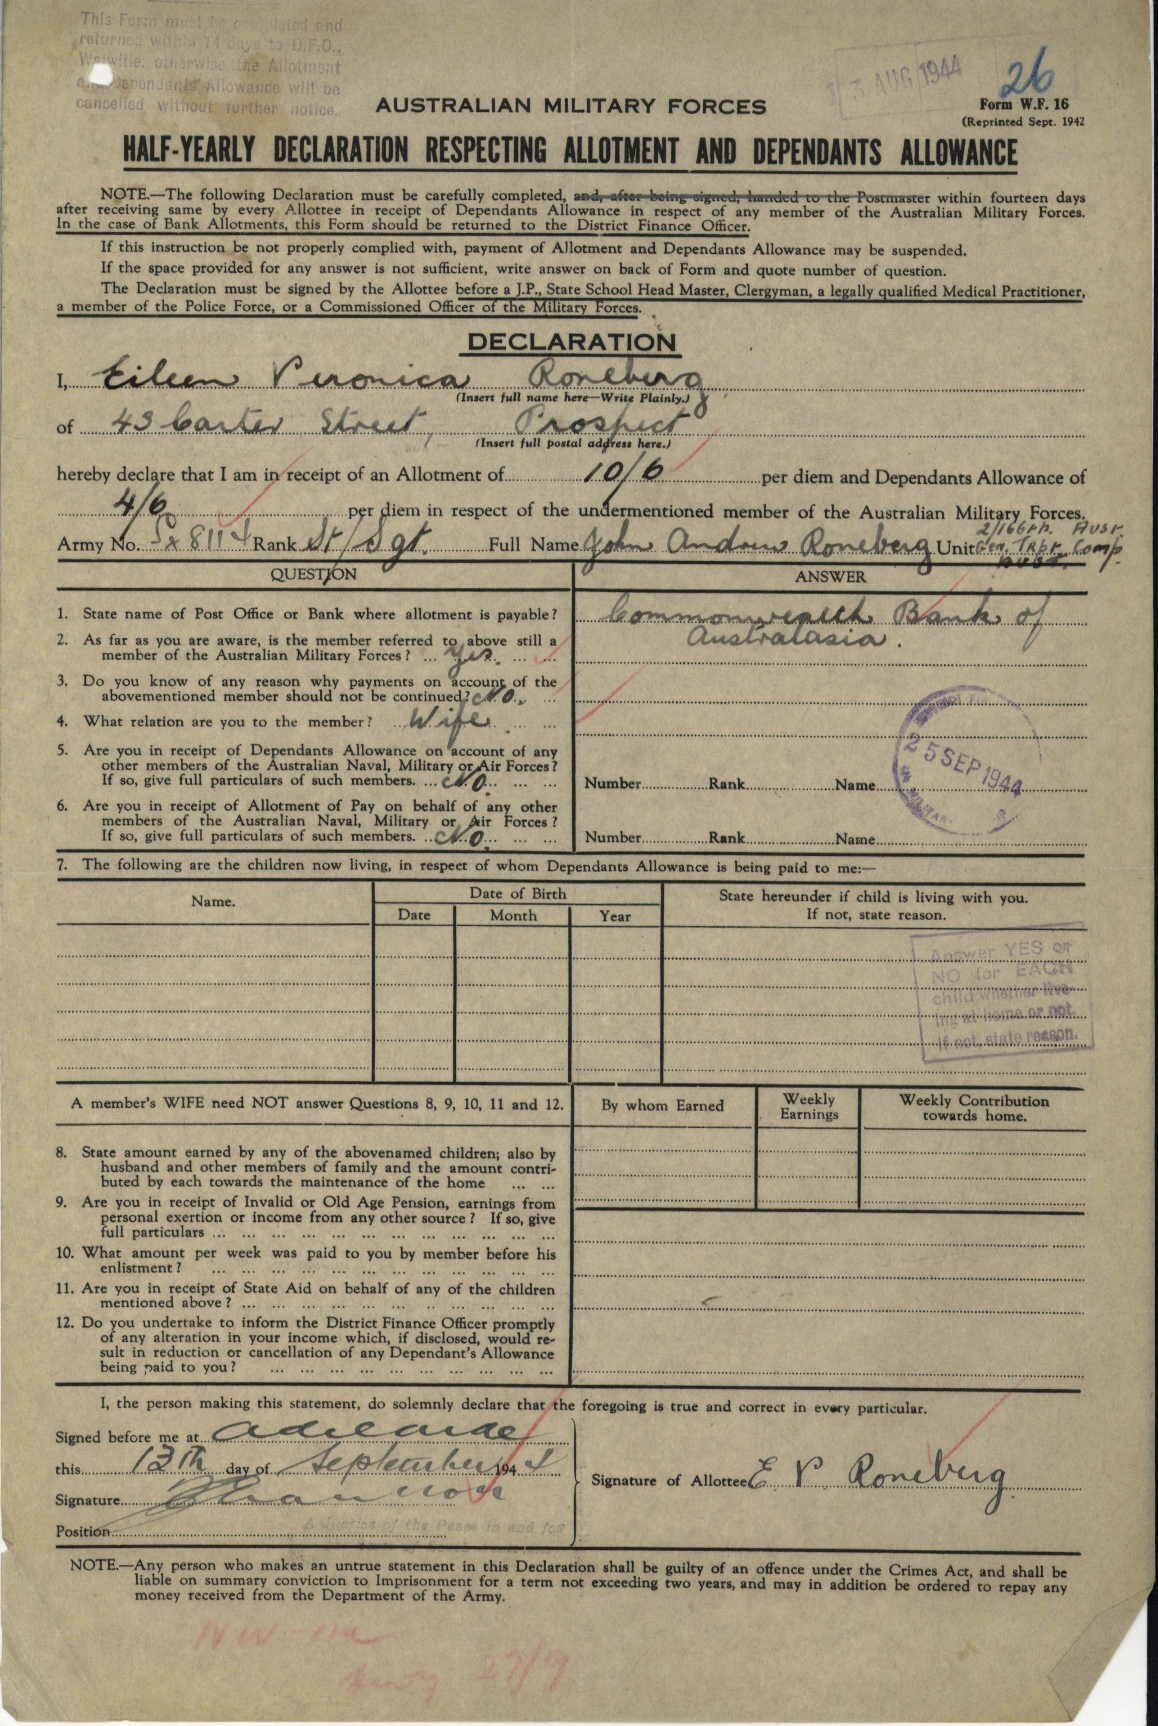 This Form must be completed and
returned within 14 days to D.F.O.,
otherwise the Allotment
and Dependants' Allowance will be
cancelled without further notice.
AUG 1944
26
AUSTRALIAN MILITARY FORCES
Form W.F. 16
(Reprinted Sept. 1942
HALF-YEARLY DECLARATION RESPECTING ALLOTMENT AND DEPENDANTS ALLOWANCE
NOTE.—The following Declaration must be carefully completed, and, after being signed, handed to the Postmaster within fourteen days
after receiving same by every Allottee in receipt of Dependants Allowance in respect of any member of the Australian Military Forces.
In the case of Bank Allotments, this Form should be returned to the District Finance Officer.
If this instruction be not properly complied with, payment of Allotment and Dependants Allowance may be suspended.
If the space provided for any answer is not sufficient, write answer on back of Form and quote number of question.
The Declaration must be signed by the Allottee before a J.P., State School Head Master, Clergyman, a legally qualified Medical Practitioner,
a member of the Police Force, or a Commissioned Officer of the Military Forces.
DECLARATION
I, Eileen Veronica Roneberg
(Insert full name here—Write Plainly.)
of 43 Carter Street, Prospect
(Insert full postal address here.)
hereby declare that I am in receipt of an Allotment of 10/6 per diem and Dependants Allowance of
4/6 per diem in respect of the undermentioned member of the Australian Military Forces.
Army No. Sx 8114 Rank St/Sgt. Full Name John Andrew Roneberg Unit 2/166th Aust Gen. Tspt. Comp.
QUESTION
ANSWER
1. State name of Post Office or Bank where allotment is payable?
Commonwealth Bank of
Australasia.
2. As far as you are aware, is the member referred to above still a
member of the Australian Military Forces? ... Yes. ... ...
3. Do you know of any reason why payments on account of the
abovementioned member should not be continued? No. ...
4. What relation are you to the member? ... Wife ... ...
5. Are you in receipt of Dependants Allowance on account of any
other members of the Australian Naval, Military or Air Forces?
If so, give full particulars of such members. ... No. ... ... ...
Number Rank Name
25 SEP 1944
6. Are you in receipt of Allotment of Pay on behalf of any other
members of the Australian Naval, Military or Air Forces?
If so, give full particulars of such members. ... No. ... ... ...
Number Rank Name
7. The following are the children now living, in respect of whom Dependants Allowance is being paid to me:—
Name.
Date of Birth
Date Month Year
State hereunder if child is living with you.
If not, state reason.
Answer YES or
NO for EACH
child whether live-
ing at home or not.
If not, state reason.
A member's WIFE need NOT answer Questions 8, 9, 10, 11 and 12.
By whom Earned
Weekly
Earnings
Weekly Contribution
towards home.
8. State amount earned by any of the abovenamed children; also by
husband and other members of family and the amount contri-
buted by each towards the maintenance of the home ... ...
9. Are you in receipt of Invalid or Old Age Pension, earnings from
personal exertion or income from any other source? If so, give
full particulars ... ... ... ... ... ... ... ... ... ... ... ...
10. What amount per week was paid to you by member before his
enlistment? ... ... ... ... ... ... ... ... ... ... ... ...
11. Are you in receipt of State Aid on behalf of any of the children
mentioned above? ... ... ... ... ... ... ... ... ... ... ...
12. Do you undertake to inform the District Finance Officer promptly
of any alteration in your income which, if disclosed, would re-
sult in reduction or cancellation of any Dependant's Allowance
being paid to you? ... ... ... ... ... ... ... ... ... ...
I, the person making this statement, do solemnly declare that the foregoing is true and correct in every particular.
Signed before me at Adelaide
this 13th day of September 1944
Signature
Position
A Justice of the Peace in and for
Signature of Allottee E V Roneberg
NOTE.—Any person who makes an untrue statement in this Declaration shall be guilty of an offence under the Crimes Act, and shall be
liable on summary conviction to Imprisonment for a term not exceeding two years, and may in addition be ordered to repay any
money received from the Department of the Army.
27/9